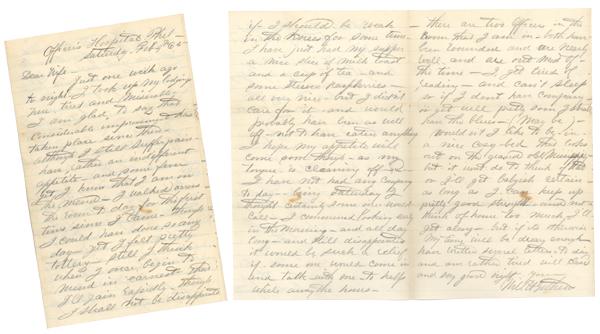 Officer's Hospital Phil-
Saturday, Feb 4th 65
Dear Wife
Just one week ago
to night I took up my lodging
here tired and miserable
I am glad to say that
considerable improvement has
taken place since then
although I still suffer pain-
have rather an indifferent
appetite - and some fever
but I know that I am on
the mend - I walked across
the room to day for the first
time since I came - though
I could have done so any
day - yet I felt pretty
tottery - still I think
when I once begin to
mend in earnest that
I'll gain rapidly - though
I shall not be disappointed
if I should be weak
in the knees for some time-
I have just had my supper
a nice slice of milk toast
and a cup of tea - and
some stewed raspberries -
all very nice - but I didn't
care for it - and would
probably have been as well
off - not to have eaten anything
I hope my appetite will
come soon though - as my
tongue is cleaning off
I have not had
to day - being Saturday I
thought certainly some one would
call - I commenced looking early
in the morning - and all day
long - and still disappointed
it would be such a relief
if some one would come in
and talk with me to help
while away the hours -
there are two officers in the
room that I am in - both have
been wounded and are nearly
well, and are out most of
the time - I get tired of
reading - and can't sleep
so if I don't have company
or get well pretty soon, I shall
have the blues - (May be) -
Would'nt I like to be in
a nice cosy bed that looks
out on the grand old
but it wont do to think
or I'll get babyish certain
as long as I can keep up
pretty good strength - and not
think of home too much I'll
get along - but if its otherwise
My time will be dreary enough
have written several letters to day
and am rather tired will close
and say good night - your